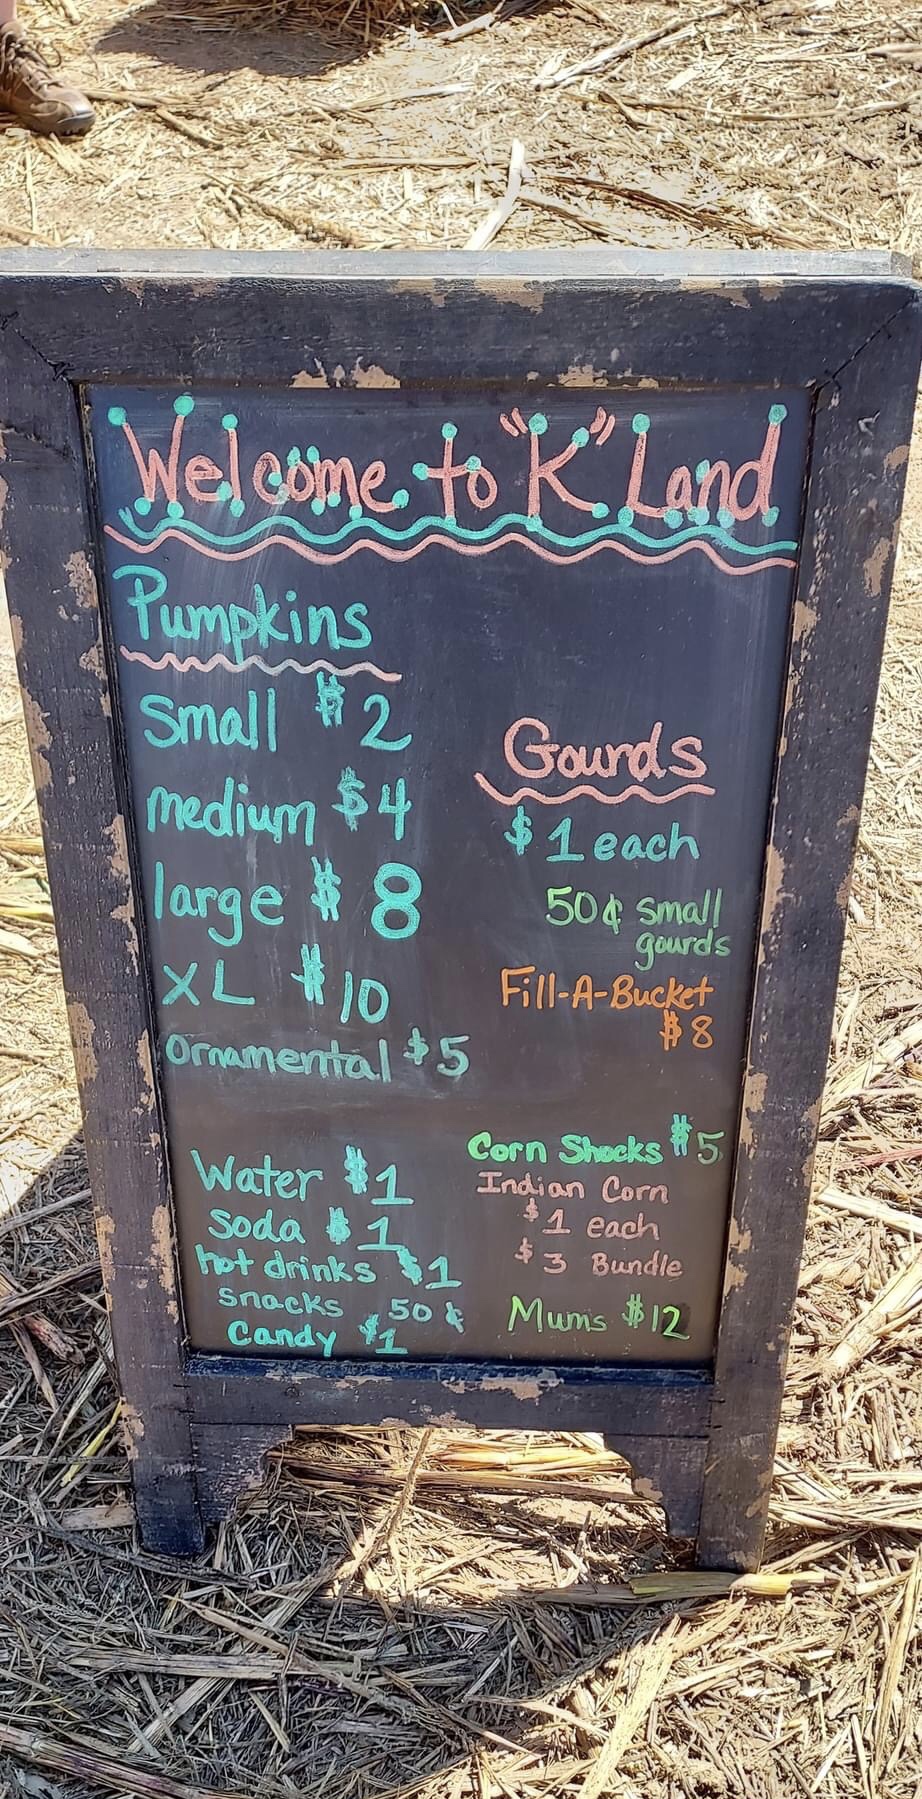 Welcome to "K" Land
Pumpkins
Small $2
medium $4
large $8
XL $10
Ornamental $5
Gourds
$1 each
50¢ small
gourds
Fill-A-Bucket
$8
Water $1
Soda $1
hot drinks $1
snacks 50¢
Candy $1
Corn Shocks $5
Indian Corn
$1 each
$3 Bundle
Mums $12